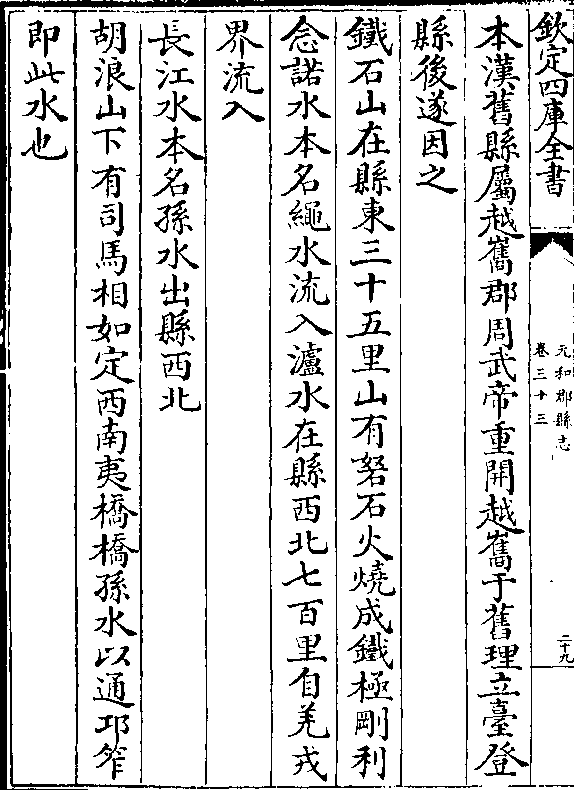 欽定四庫全書
元和郡縣志
卷三十三
二十九
本漢舊縣屬越嶲郡周武帝重開越嶲于舊理立臺登
縣後遂因之
鐵石山在縣東三十五里山有砮石火燒成鐵極剛利
念諾水本名繩水流入瀘水在縣西北七百里自羌戎
界流入
長江水本名孫水出縣西北
胡浪山下有司馬相如定西南夷橋橋孫水以通邛笮
即此水也